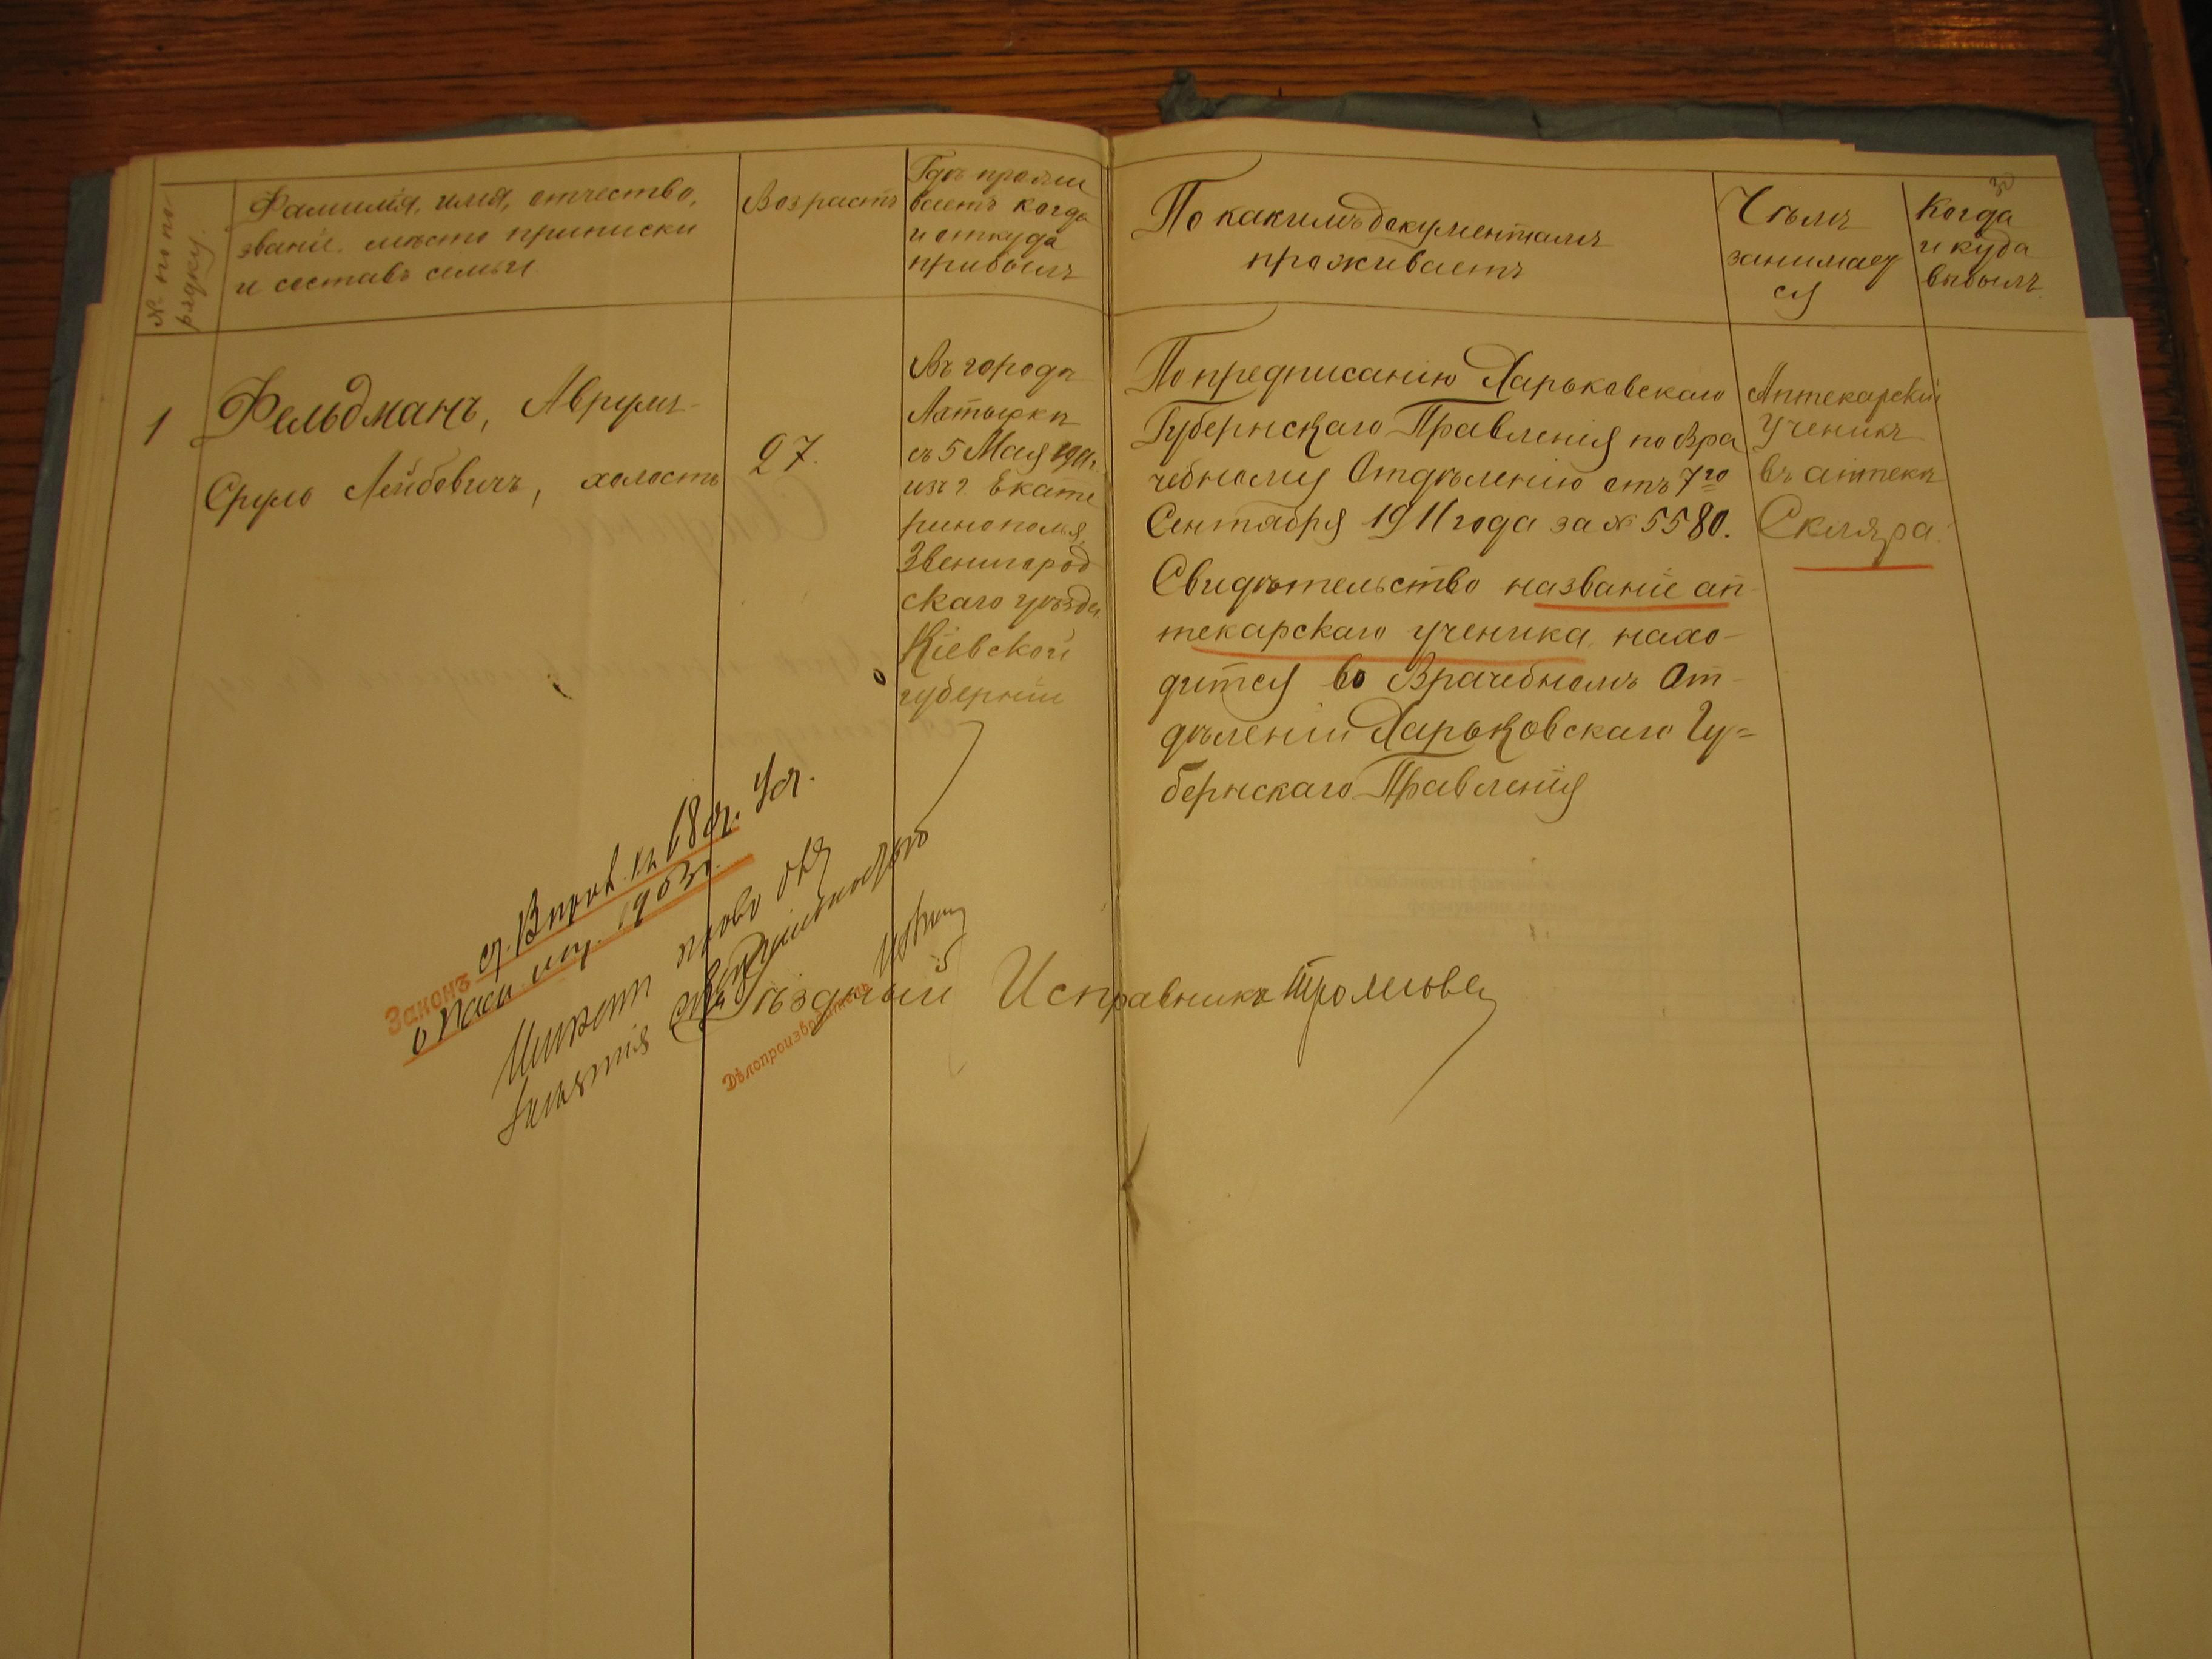 № по по-
рядку.
Фамилія, имя, отчество,
званіе, мѣсто приписки
и составъ семьи.
Возрастъ
Гдѣ прожи
ваетъ когда
и откуда
прибылъ
По какимъ документамъ
проживаетъ
Чѣмъ
занимает
ся
Когда
и куда
выбылъ.
1
Фельдманъ, Аврумъ-
Сруль Лейбовичъ, холостъ
27.
Въ городѣ
съ 5 Мая 1911г.
изъ г. Екате
ринополья,
Звенигород
скаго уѣзда
Кіевской
губерніи
По предписанію Харьковскаго
Губернскаго Правленія по Вра
чебному Отдѣленію отъ 7го
Сентября 1911 года за № 5580.
Свидѣтельство названіе ап-
текарскаго ученика нахо-
дится во Врачебномъ От-
дѣленіи Харьковскаго Гу=
бернскаго Правленія
Аптекарскій
ученикъ
въ аптекѣ
Скляра.
Законъ ст. 68 Уст.
о Пасп. изд. 1903г.
Имѣетъ право для
занятія
Дѣлопроизводитель
Уѣздный Исправникъ